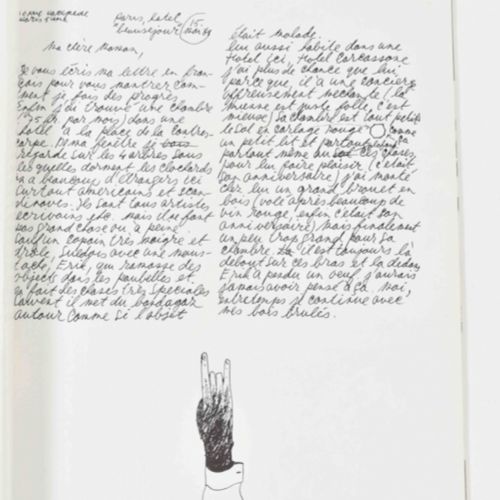 Paris, hotel
"beausejour" 15
Nov. 49
Ma chère Maman,
Je vous écris ma lettre en fran-
çais pour vous montrer com-
ment je fais des progrès.
Enfin j'ai trouvé une chambre
par mois) dans une
hotel à la place de la contres-
carpe. Dema fenêtre je
regarde sur les 4 arbres sous
les quelles dorment les clochards
Il y a beaucoup d'étrangers ici
surtout américains et scan-
dinaves. Ils sont tous artistes
ecrivains etc. mais il ne font
pas grand chose ou a peine
sauf un copain très maigre et
drôle, Suédois avec une mous-
tache, Erik, qui ramasse des
objets dans les poubelles et
en fait des choses très speciales
souvent il met du bandagaz
autour comme si l'objet
était malade.
Lui aussi habite dans une
Hotel ici, Hotel Carcassonne
j'ai plus de chance que lui
parce que, il a un concierg
méchante (la
mienne est juste folle, c'est
mieux) Sa chambre est tout petite
le sol en carlage rouge comme ça
un petit lit et partout
partout même au ces choses
pour lui faire plaisir (c'était
son anniversaire) j'ai monté
chez lui un grand brouet en
bois (volé après beaucoup de
vin rouge, enfin c'etait son
anniversaire) mais finalement
un peu trop grand pour sa
chambre il est toujours là
debout sur ces bras et la dedans
Erik a perdu un oeuf j'aurais
jamais pensé a ça. Moi,
entretemps je continue avec
mes bois brulés.